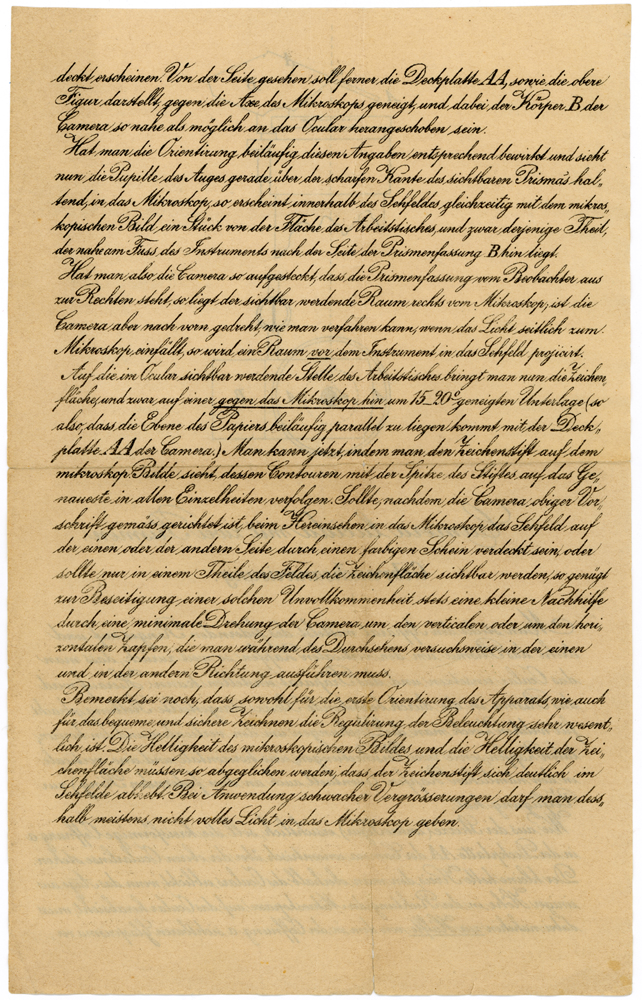 deckt erscheinen. Von der Seite gesehen soll ferner die Deckplatte AA, sowie die obere
Figur darstellt, gegen die Axe des Mikroskops geneigt, und dabei der Körper B der
Camera so nahe als möglich an das Ocular herangeschoben sein.
Hat man die Orientirung beiläufig diesen Angaben entsprechend bewirkt und sieht
nun die Pupille des Auges gerade über der scharfen Kante des sichtbaren Prisma's hal-
tend, in das Mikroskop, so erscheint innerhalb des Sehfeldes gleichzeitig mit dem mikros-
kopischen Bild ein Stück von der Fläche des Arbeitstisches, und zwar derjenige Theil,
der nahe am Fuss des Instruments nach der Seite der Prismenfassung B hin liegt.
Hat man also die Camera so aufgesteckt, dass die Prismenfassung vom Beobachter aus
zur Rechten steht, so liegt der sichtbar werdende Raum rechts vom Mikroskop; ist die
Camera aber nach vorn gedreht, wie man verfahren kann, wenn das Licht seitlich zum
Mikroskop einfällt, so wird ein Raum vor dem Instrument in das Sehfeld projicirt.
Auf die im Ocular sichtbar werdende Stelle des Arbeitstisches bringt man nun die Zeichen-
fläche, und zwar auf einer gegen das Mikroskop hin um 15-20° geneigten Unterlage (so
also, dass die Ebene des Papiers beiläufig parallel zu liegen kommt mit der Deck-
platte AA der Camera.) Man kann jetzt, indem man den Zeichenstift auf dem
mikroskop. Bilde sieht, dessen Contouren mit der Spitze des Stiftes auf das Ge-
naueste in allen Einzelheiten verfolgen. Sollte, nachdem die Camera obiger Vor-
schrift gemäss gerichtet ist, beim Hereinsehen in das Mikroskop das Sehfeld auf
der einen oder der andern Seite durch einen farbigen Schein verdeckt sein, oder
sollte nur in einem Theile des Feldes die Zeichenfläche sichtbar werden, so genügt
zur Beseitigung einer solchen Unvollkommenheit stets eine kleine Nachhilfe
durch eine minimale Drehung der Camera um den verticalen oder um den hori-
zontalen Zapfen, die man während des Durchsehens versuchsweise in der einen
und in der andern Richtung ausführen muss.
Bemerkt sei noch, dass sowohl für die erste Orientirung des Apparats, wie auch
für das bequeme und sichere Zeichnen die Regulirung der Beleuchtung sehr wesent-
lich ist. Die Helligkeit des mikroskopischen Bildes und die Helligkeit der Zei-
chenfläche müssen so abgeglichen werden, dass der Zeichenstift sich deutlich im
Sehfelde abhebt. Bei Anwendung schwacher Vergrösserungen darf man dess-
halb meistens nicht volles Licht in das Mikroskop geben.